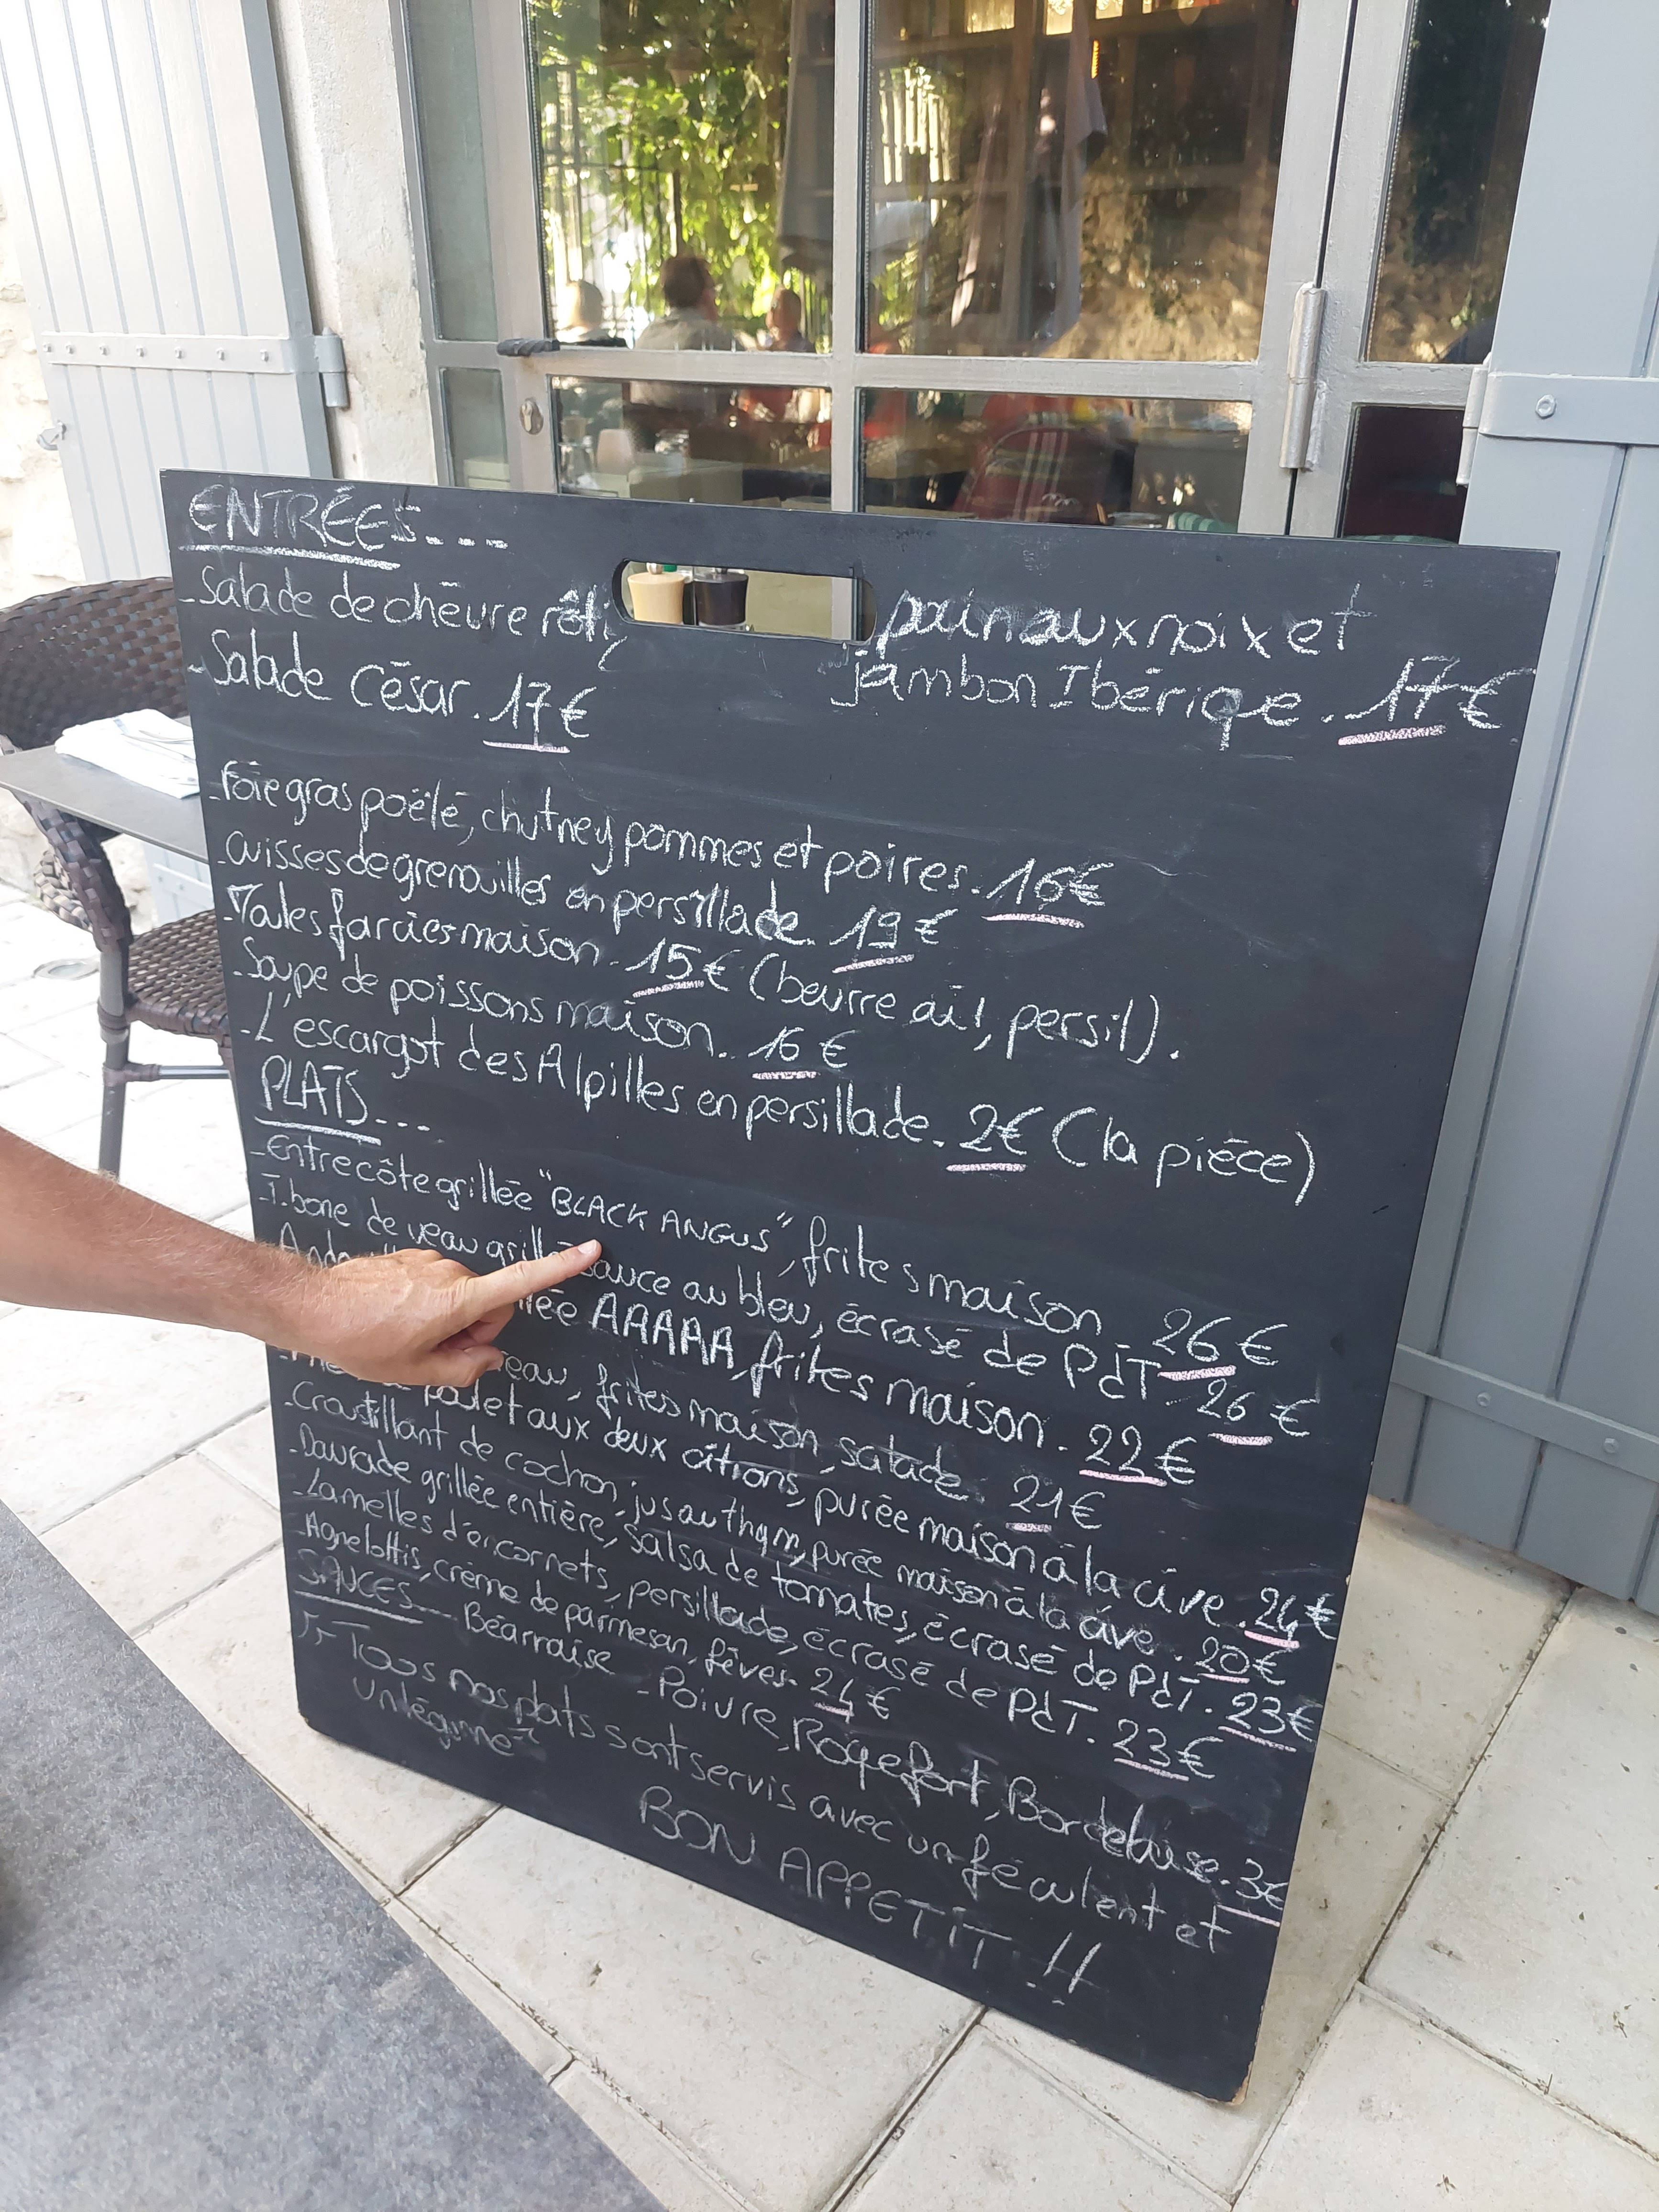 ENTRÉES....
-Salade de chèvre rôti, pain aux noix et
jambon Ibérique. 17€
-Salade César. 17€
-Foie gras poëlé, chutney pommes et poires. 16€
-Cuisses de grenouilles en persillade. 19€
-Moules farcies maison. 15€ (beurre ail, persil).
-Soupe de poissons maison. 16€
-L'escargot des Alpilles en persillade. 2€ (la pièce)
PLATS....
-Entrecôte grillée "BLACK ANGUS", frites maison 26€
-T.bone de veau grillé sauce au bleu, écrasé de PdT 26€
AAAAA, frites maison. 22€
frites maison, salade. 21€
poulet aux deux citrons, purée maison à la cive. 24€
-Croustillant de cochon, jus au thym, purée maison à la cive. 20€
-Daurade grillée entière, salsa de tomates, écrasé de PdT. 23€
-Lamelles d'encornets, persillade, écrasé de PdT. 23€
-Agnelottis, crème de parmesan, fèves. 24€
SAUCES.... Béarnaise - Poivre, Roquefort, Bordelaise. 3€
Tous nos plats sont servis avec un féculent et
un légume
BON APPETIT !!